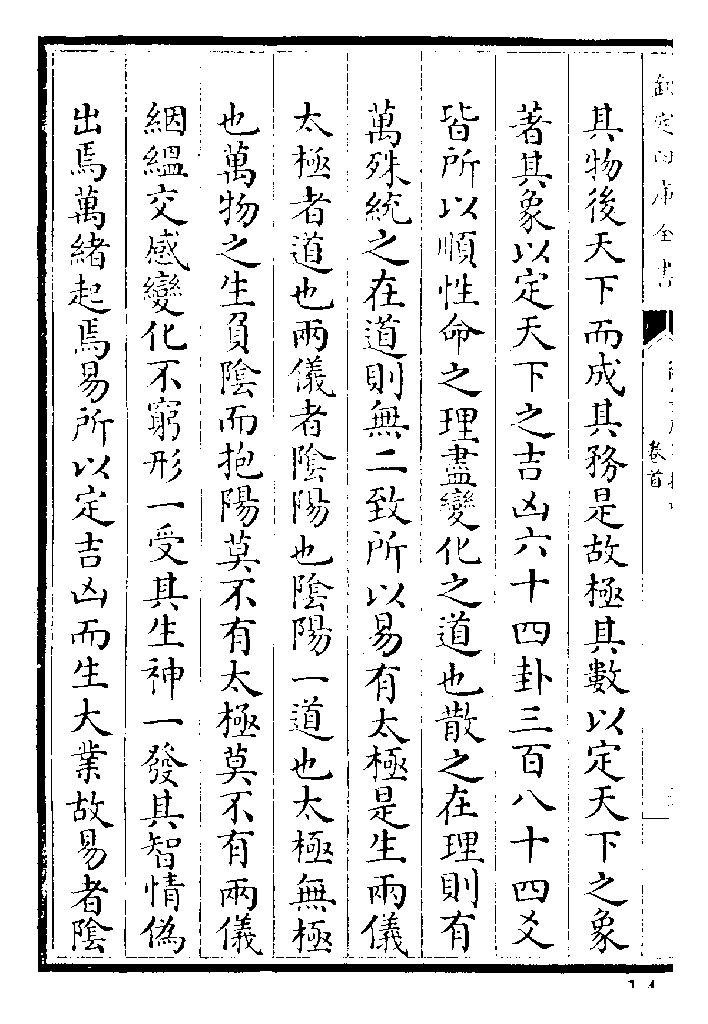 欽定四庫全書
卷首
其物後天下而成其務是故極其數以定天下之象
著其象以定天下之吉凶六十四卦三百八十四爻
皆所以順性命之理盡變化之道也散之在理則有
萬殊統之在道則無二致所以易有太極是生兩儀
太極者道也兩儀者陰陽也陰陽一道也太極無極
也萬物之生負陰而抱陽莫不有太極莫不有兩儀
絪縕交感變化不窮形一受其生神一發其智情偽
出焉萬緒起焉易所以定吉凶而生大業故易者陰